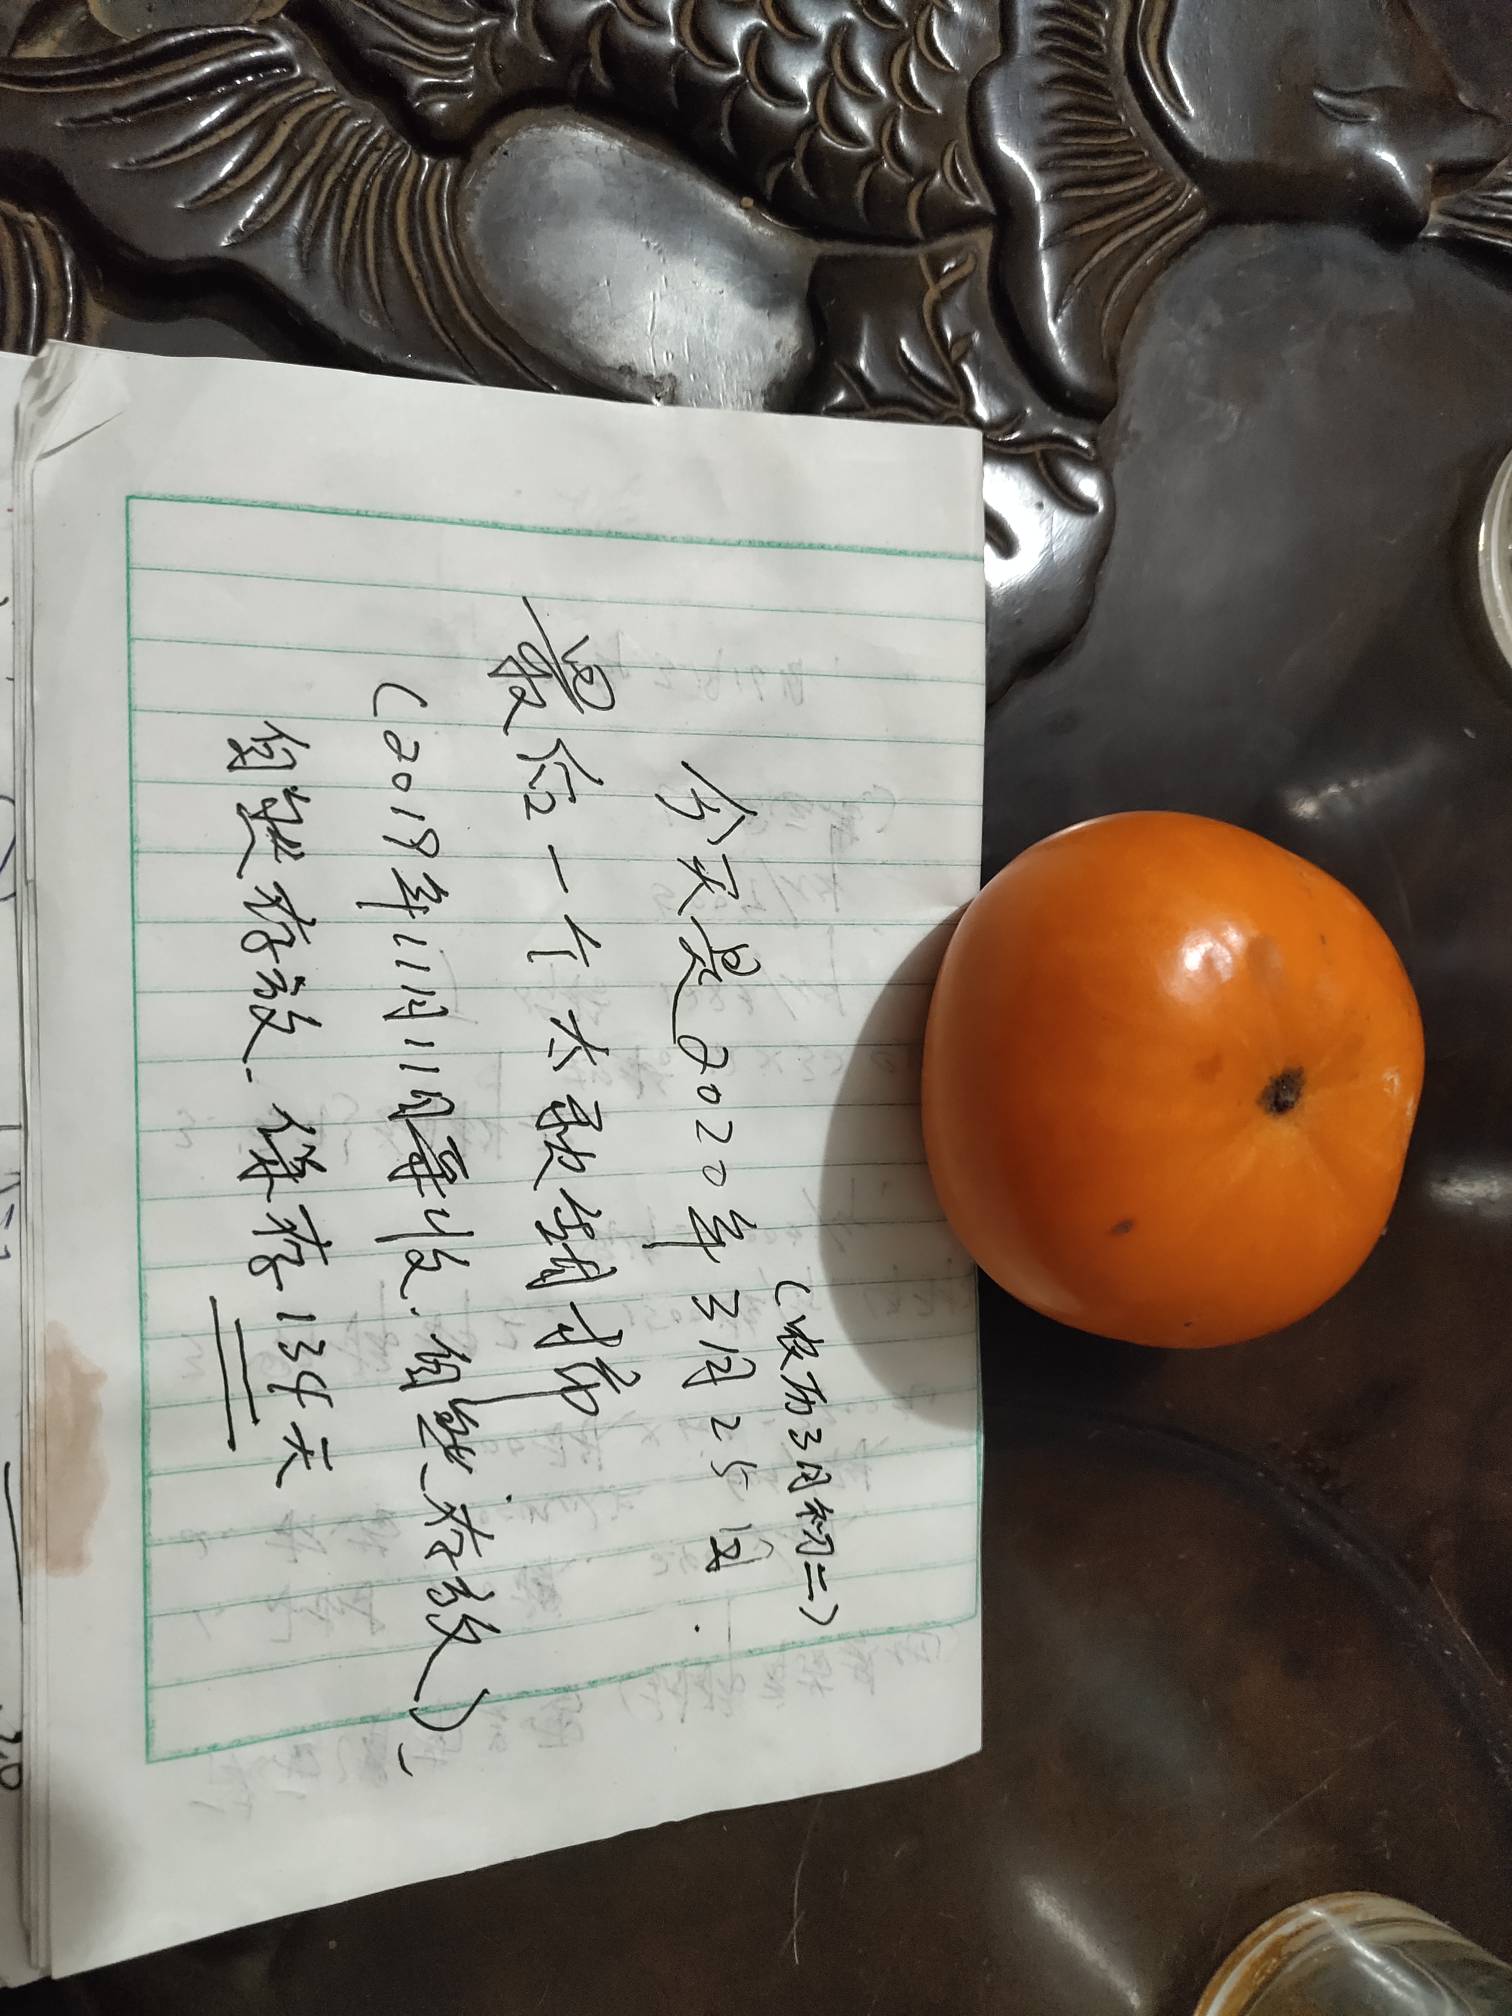 (农历3月初二)
今天是2020年3月25日.
最后一个太秋甜柿
(2019年11月11日采收.自然存放)
自然存放.保存134天